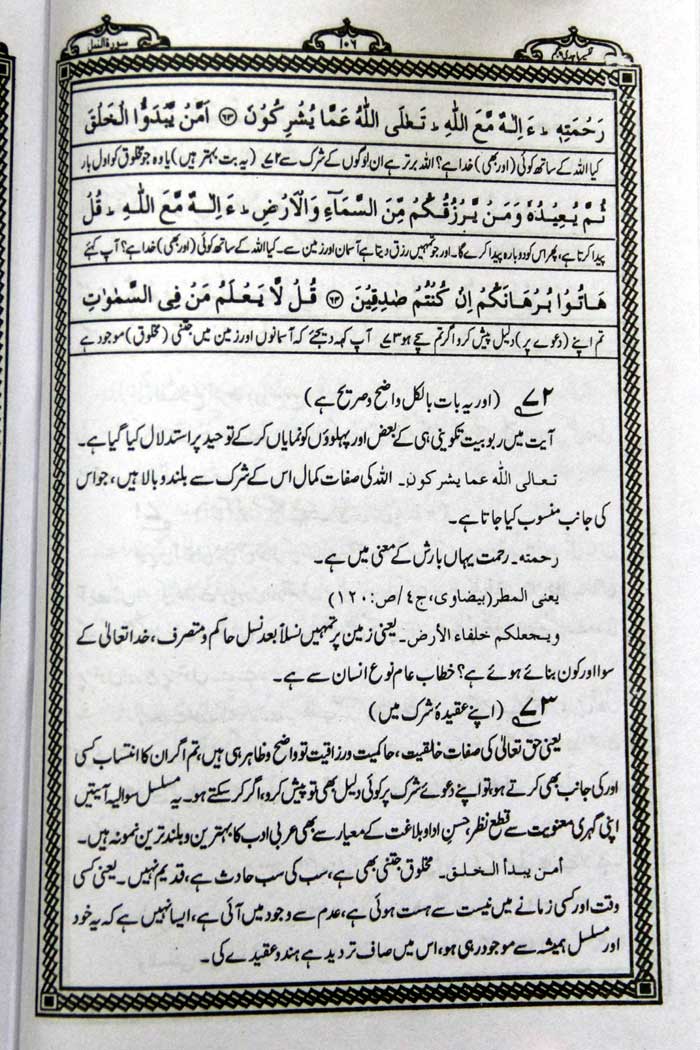 تفسیر ماجدی
۱۰۶
سورۃ النمل
رَحْمَتِهٖ ؕ ءَاِلٰهٌ مَّعَ اللّٰهِ ؕ تَعٰلَى اللّٰهُ عَمَّا يُشْرِكُوْنَ ۝۶۳ اَمَّنْ يَّبْدَؤُا الْخَلْقَ
کیا اللہ کے ساتھ کوئی (اور بھی) خدا ہے؟ اللہ برتر ہے ان لوگوں کے شرک سے ۷۲ (یہ بت بہتر ہیں) یا وہ جو مخلوق کو اول بار
ثُمَّ يُعِيْدُهٗ وَمَنْ يَّرْزُقُكُمْ مِّنَ السَّمَآءِ وَالْاَرْضِ ؕ ءَاِلٰهٌ مَّعَ اللّٰهِ ؕ قُلْ
پیدا کرتا ہے، پھر اس کو دوبارہ پیدا کرے گا۔ اور جو تمہیں رزق دیتا ہے آسمان اور زمین سے۔ کیا اللہ کے ساتھ کوئی (اور بھی) خدا ہے؟ آپ کہئے
هَاتُوْا بُرْهَانَكُمْ اِنْ كُنْتُمْ صٰدِقِيْنَ ۝۶۴ قُلْ لَّا يَعْلَمُ مَنْ فِى السَّمٰوٰتِ
تم اپنے (دعوے پر) دلیل پیش کرو اگر تم سچے ہو ۷۳ آپ کہہ دیجئے کہ آسمانوں اور زمین میں جتنی (مخلوق) موجود ہے
۷۲ (اور یہ بات بالکل واضح و صریح ہے)
آیت میں ربوبیت تکوینی ہی کے بعض اور پہلوؤں کو نمایاں کر کے توحید پر استدلال کیا گیا ہے۔
تعالی اللہ عما یشرکون۔ اللہ کی صفات کمال اس کے شرک سے بلند و بالا ہیں، جو اس
کی جانب منسوب کیا جاتا ہے۔
رحمتہ۔ رحمت یہاں بارش کے معنی میں ہے۔
یعنی المطر (بیضاوی، ج٤/ص:١٢٠)
ویجعلکم خلفاء الأرض۔ یعنی زمین پر تمہیں نسلاً بعد نسل حاکم و متصرف، خدا تعالیٰ کے
سوا اور کون بنائے ہوئے ہے؟ خطاب عام نوع انسان سے ہے۔
۷۳ (اپنے عقیدۂ شرک میں)
یعنی حق تعالیٰ کی صفات خلقیت، حاکمیت ورزاقیت تو واضح و ظاہر ہی ہیں، تم اگر ان کا انتساب کسی
اور کی جانب بھی کرتے ہو، تو اپنے دعوائے شرک پر کوئی دلیل بھی تو پیش کرو، اگر کر سکتے ہو۔ یہ مسلسل سوالیہ آیتیں
اپنی گہری معنویت سے قطع نظر، حسن ادا و بلاغت کے معیار سے بھی عربی ادب کا بہترین و بلند ترین نمونہ ہیں۔
أمن یبدأ الخلق۔ مخلوق جتنی بھی ہے، سب کی سب حادث ہے، قدیم نہیں۔ یعنی کسی
وقت اور کسی زمانے میں نیست سے ہست ہوئی ہے، عدم سے وجود میں آئی ہے، ایسا نہیں ہے کہ یہ خود
اور مسلسل ہمیشہ سے موجود رہی ہو، اس میں صاف تردید ہے ہندو عقیدے کی۔